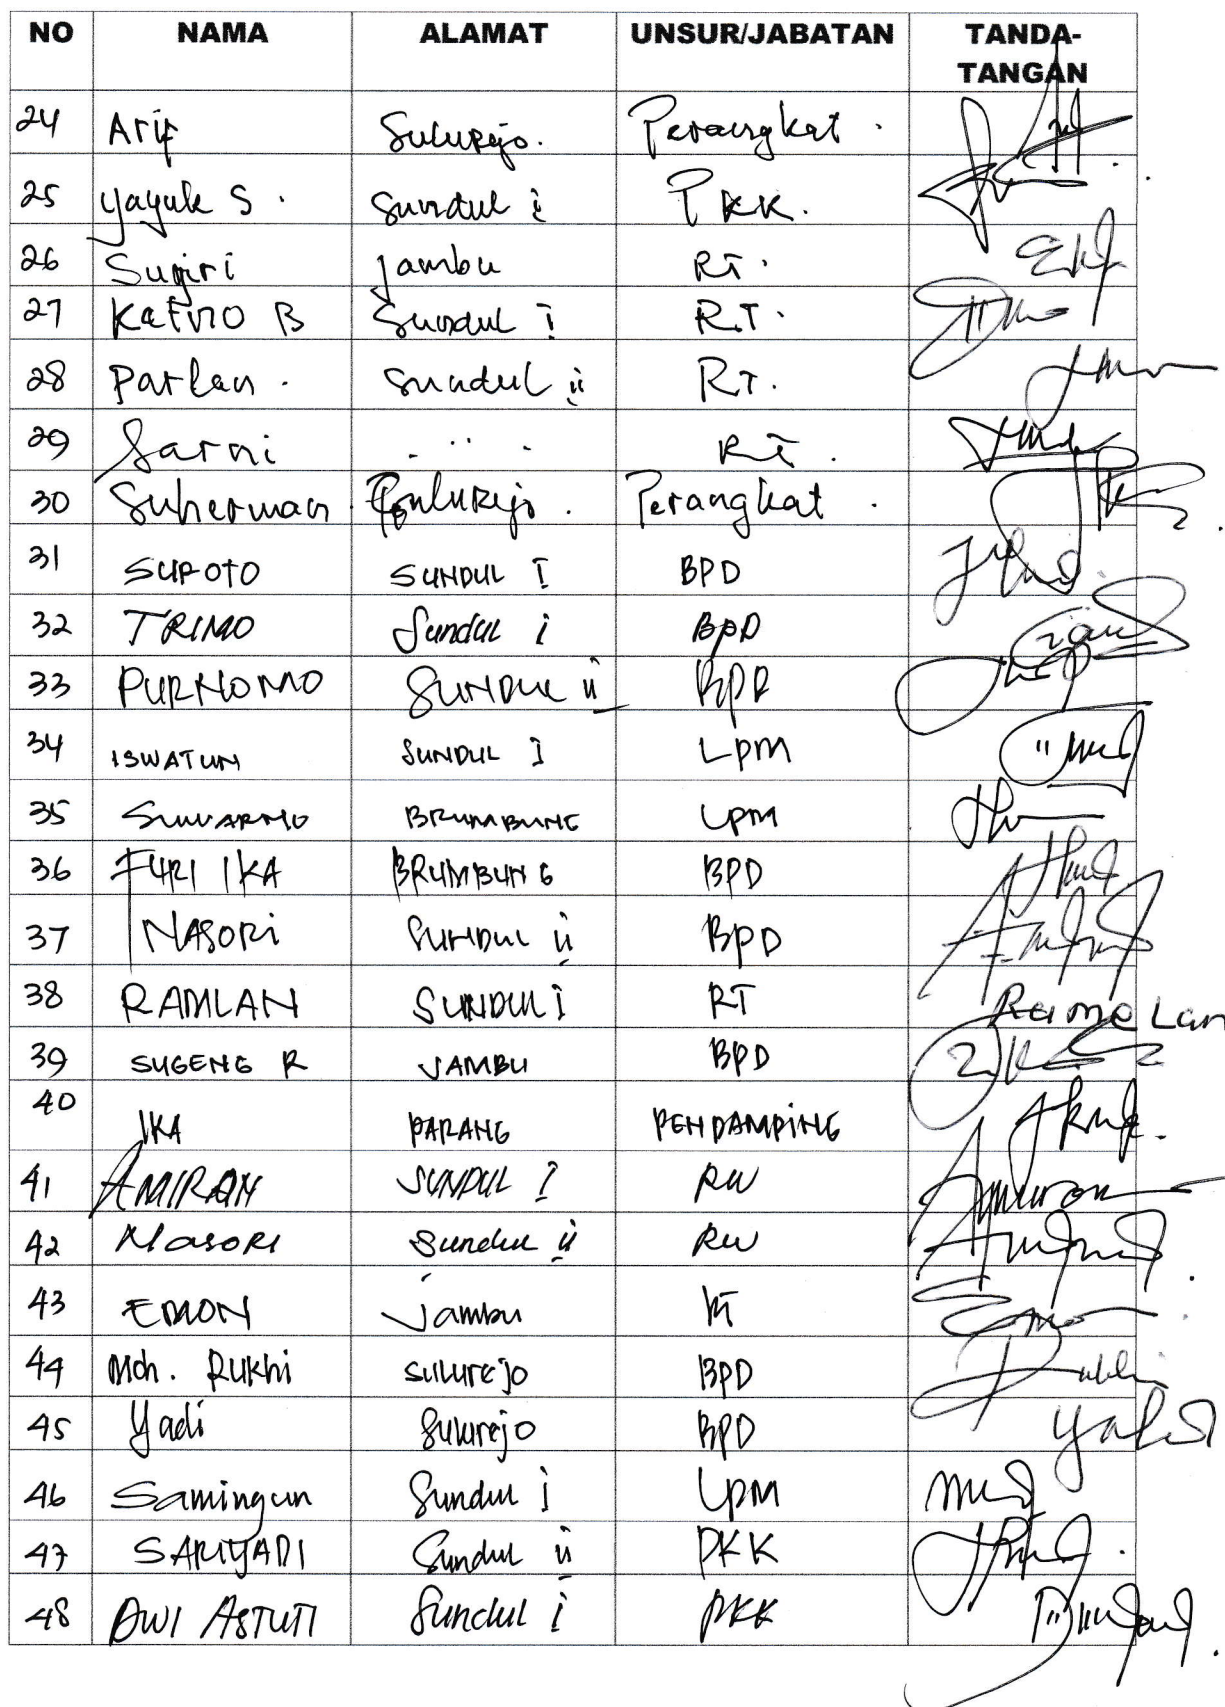 NO NAMA ALAMAT UNSUR/JABATAN TANDA-
TANGAN
24 Arif Sulurejo. Perangkat.
25 Yayuk S. Sundul I PKK.
26 Sugiri Jambu RT.
27 Katino B Sundul I RT.
28 Parlan. Sundul II RT.
29 Sarni . .. . RT.
30 Suherman Perangkat.
31 SUPOTO SUNDUL I BPD
32 TRIMO Sundul I BPD
33 PURNOMO SUNDUL II BPD
34 ISWATUN SUNDUL I LPM
35 SUWARNO BRUMBUNG LPM
36 FURI IKA BRUMBUNG BPD
37 NASORI SUNDUL II BPD
38 RAMLAN SUNDUL I RT Ramelan
39 SUGENG R JAMBU BPD
40 IKA PARANG PENDAMPING
41 AMIRAN SUNDUL I RW
42 MASORI Sundul II RW
43 EMON Jambu RT
44 Moh. Rukhi Sulurejo BPD
45 Yadi Sulurejo BPD
46 Samingun Sundul I LPM
47 SARIYADI Sundul II PKK
48 DWI ASTUTI Sundul I PKK